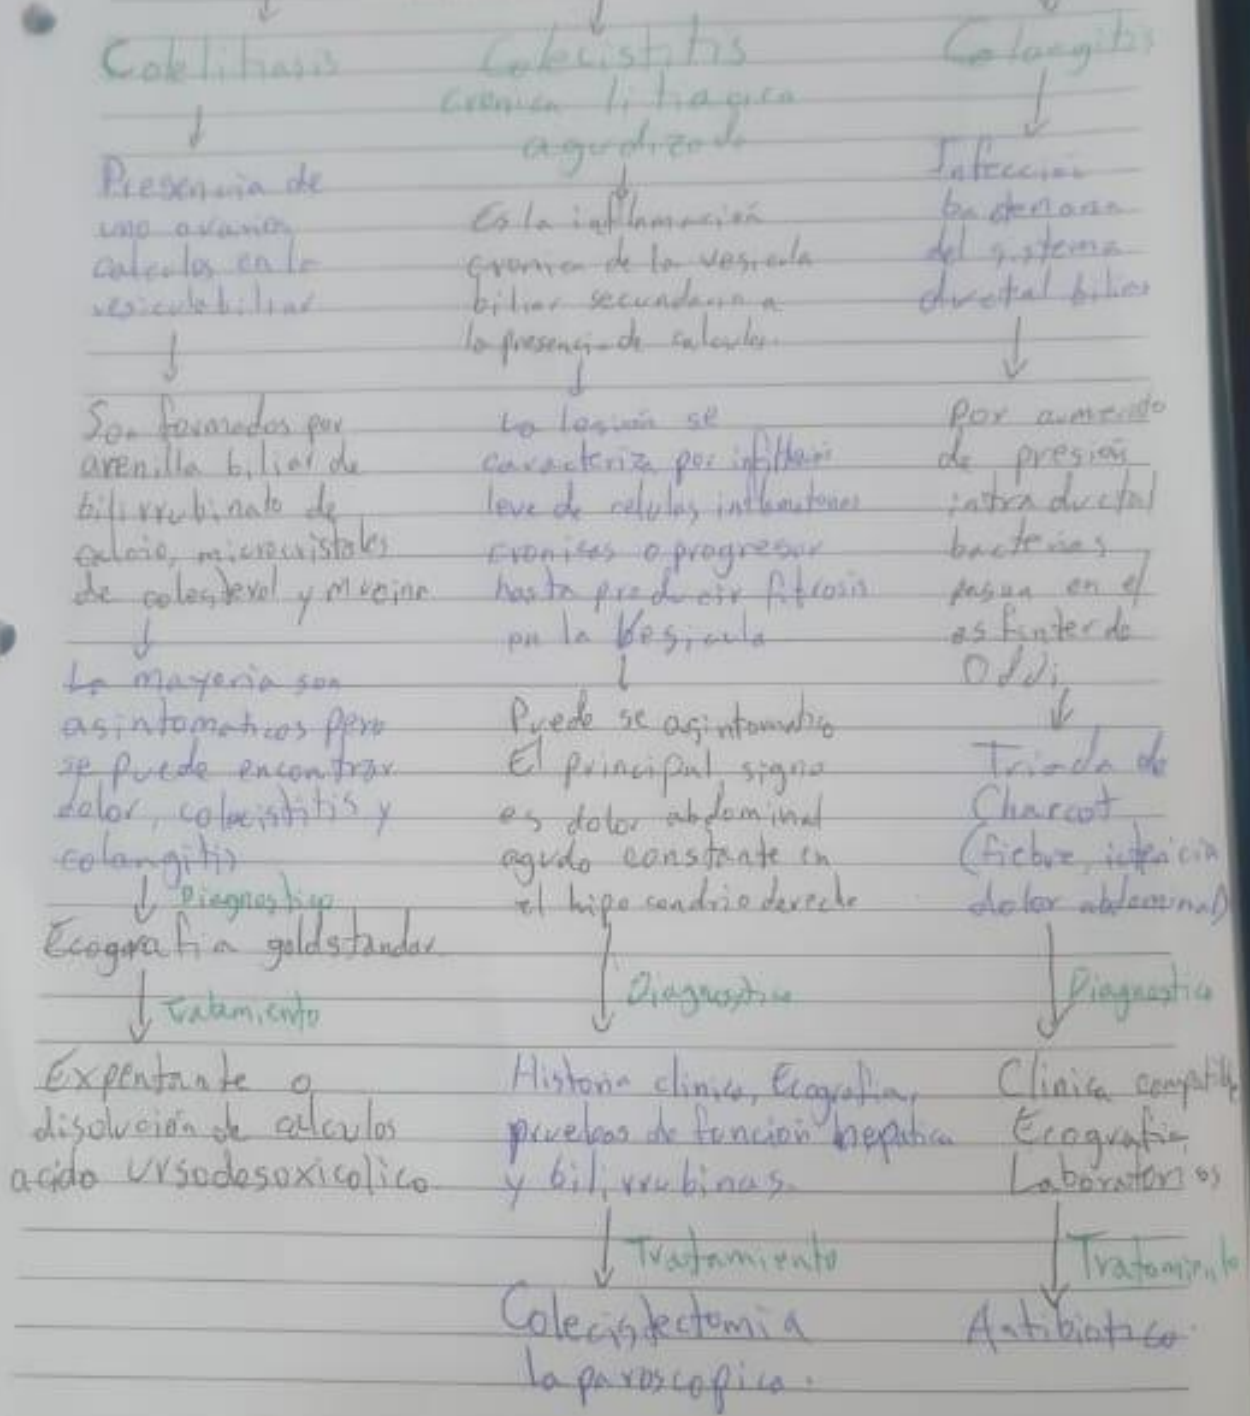 Colelitiasis
Presencia de
uno o varios
calculos en la
vesicula biliar
Son formados por
arenilla biliar de
bilirrubinato de
calcio, microcristales
de colesterol y mucina
La mayeria son
asintomaticos pero
se puede encontrar
dolor, colecistitis y
colangitis
Diagnostico
Ecografia goldstandar
Tratamiento
Expentante o
disolución de calculos
acido Ursodesoxicolico
Colecistitis
cronica litiagica
agudizada
Es la inflamación
cronica de la vesicula
biliar secundaria a
la presencia de calculos.
La lesión se
caracteriza por
leve de celulas inflamatorias
cronicas o progresar
hasta producir fibrosis
en la Vesicula
Puede se asintomatico
El principal signo
es dolor abdominal
agudo constante en
el hipocondrio derecho
Diagnostico
Historia clinica, Ecografia,
pruebas de función hepatica
y bilirrubinas.
Tratamiento
Colecistectomia
laparoscopica.
Colangitis
Infección
bacteriana
del sistema
ductal biliar
Por aumento
de presión
intraductal
bacterias
pasan en el
esfinter de
Oddi
Triada de
Charcot
(fiebre, ictericia
dolor abdominal)
Diagnostico
Clinica compatible
Ecografia
Laboratorios
Tratamiento
Antibiotico.